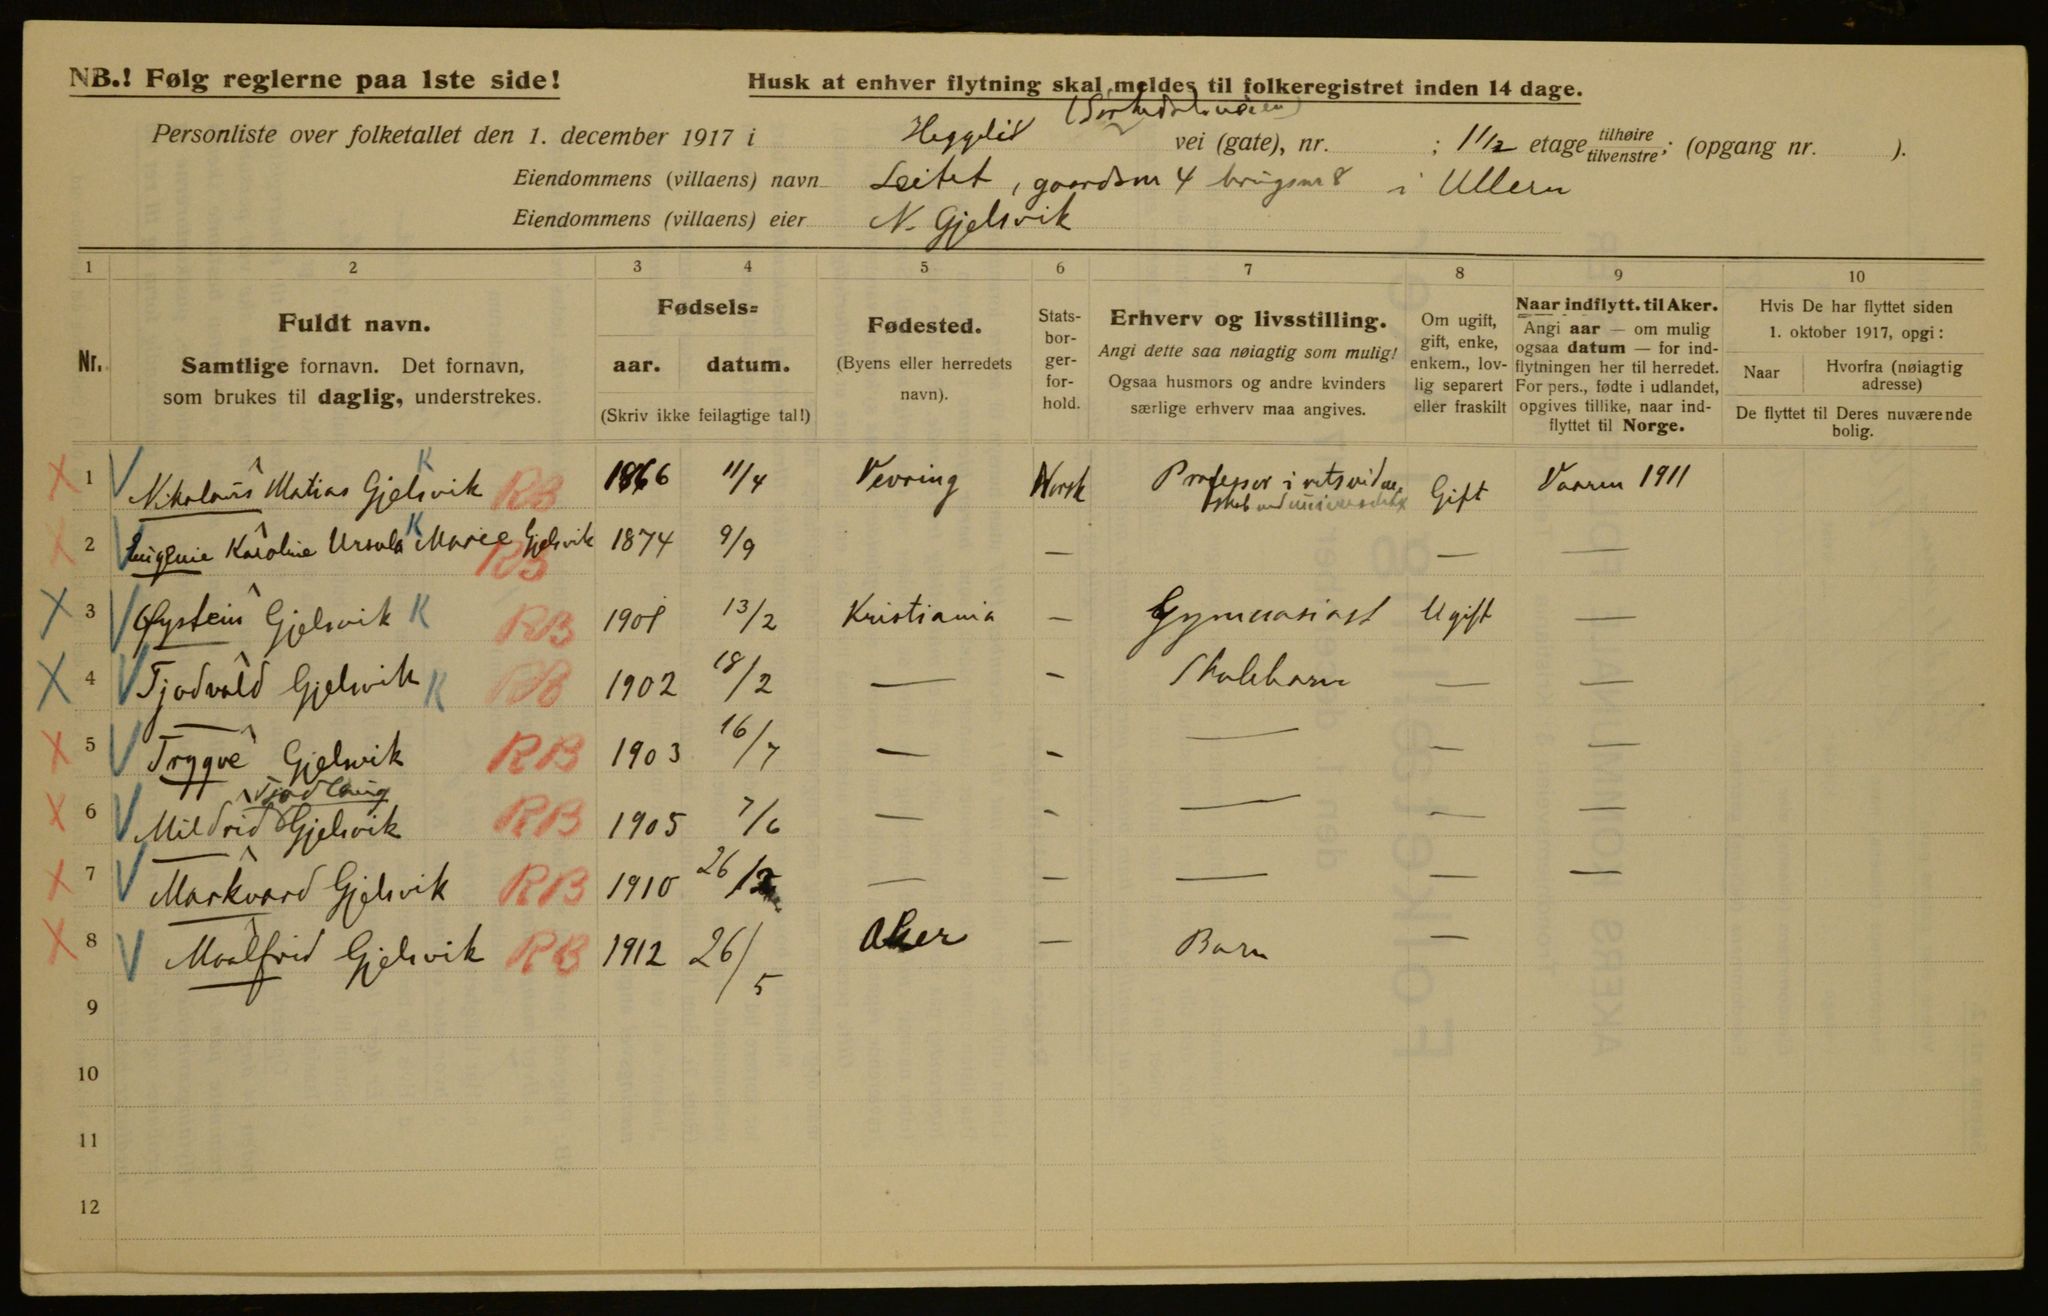 NB.! Følg reglerne paa 1ste side!
Husk at enhver flytning skal meldes til folkeregistret inden 14 dage.
Personliste over folketallet den 1. december 1917 i Heggeli (Sørkedalsveien) vei (gate), nr. ; 1 1/2 etage tilhøire tilvenstre; (opgang nr. ).
Eiendommens (villaens) navn Leitet, gaardsnr 4 brugsnr 8 i Ullern
Eiendommens (villaens) eier N. Gjelsvik
1 2 3 4 5 6 7 8 9 10
Nr.
Fuldt navn.
Samtlige fornavn. Det fornavn,
som brukes til daglig, understrekes.
Fødsels=
aar. datum.
(Skriv ikke feilagtige tal!)
Fødested.
(Byens eller herredets
navn).
Stats-
bor-
ger-
for-
hold.
Erhverv og livsstilling.
Angi dette saa nøiagtig som mulig!
Ogsaa husmors og andre kvinders
særlige erhverv maa angives.
Om ugift,
gift, enke,
enkem., lov-
lig separert
eller fraskilt
Naar indflytt. til Aker.
Angi aar — om mulig
ogsaa datum — for ind-
flytningen her til herredet.
For pers., fødte i udlandet,
opgives tillike, naar ind-
flyttet til Norge.
Hvis De har flyttet siden
1. oktober 1917, opgi:
Naar
Hvorfra (nøiagtig
adresse)
De flyttet til Deres nuværende
bolig.
X 1 V Nikolaus Matias Gjelsvik K RB 1866 11/4 Vevring Norsk Professor i retsviden- Gift Vaaren 1911
skab ved universitetet
X 2 V Eugenie Karoline Ursula K Marie Gjelsvik RB 1874 9/9 — — —
X 3 V Øystein Gjelsvik K RB 1901 13/2 Kristiania — Gymnasiast Ugift —
X 4 V Tjodvald Gjelsvik K RB 1902 18/2 — - Skolebarn — —
X 5 V Trygve Gjelsvik RB 1903 16/7 — - — — —
Tjodlaug
X 6 V Mildrid Gjelsvik RB 1905 7/6 — - — — —
X 7 V Markvard Gjelsvik RB 1910 26/12 — — — — —
X 8 V Maalfrid Gjelsvik RB 1912 26/5 Aker — Barn —
9
10
11
12